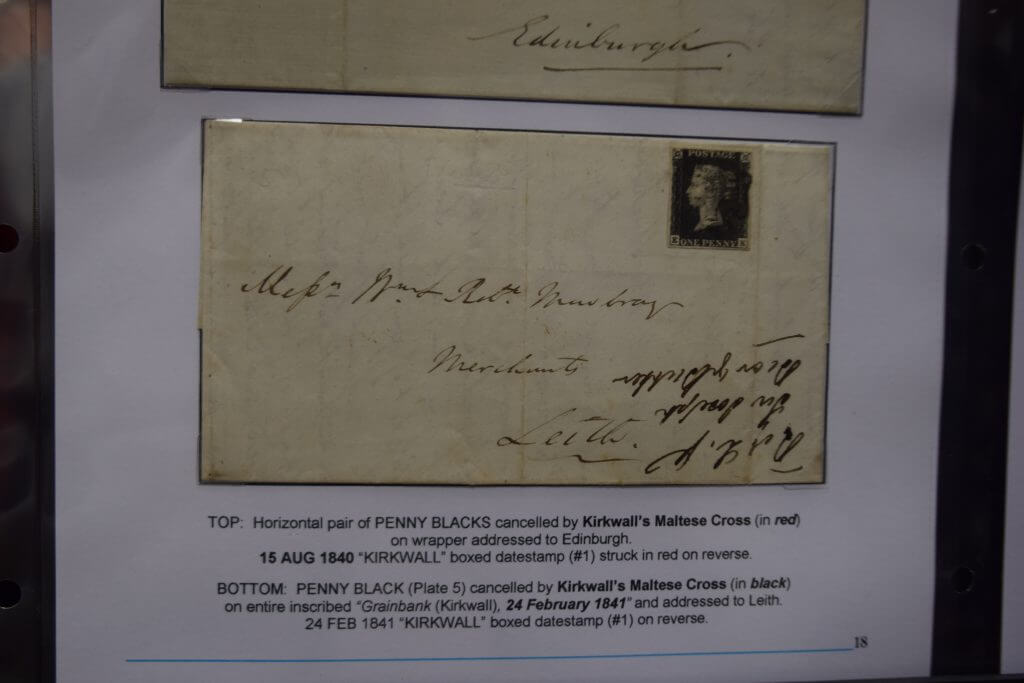 Edinburgh.
POSTAGE
ONE PENNY
Messrs Wm & Robt. Mowbray
Merchants
Leith.
TOP: Horizontal pair of PENNY BLACKS cancelled by Kirkwall's Maltese Cross (in red)
on wrapper addressed to Edinburgh.
15 AUG 1840 "KIRKWALL" boxed datestamp (#1) struck in red on reverse.
BOTTOM: PENNY BLACK (Plate 5) cancelled by Kirkwall's Maltese Cross (in black)
on entire inscribed "Grainbank (Kirkwall), 24 February 1841" and addressed to Leith.
24 FEB 1841 "KIRKWALL" boxed datestamp (#1) on reverse.
18